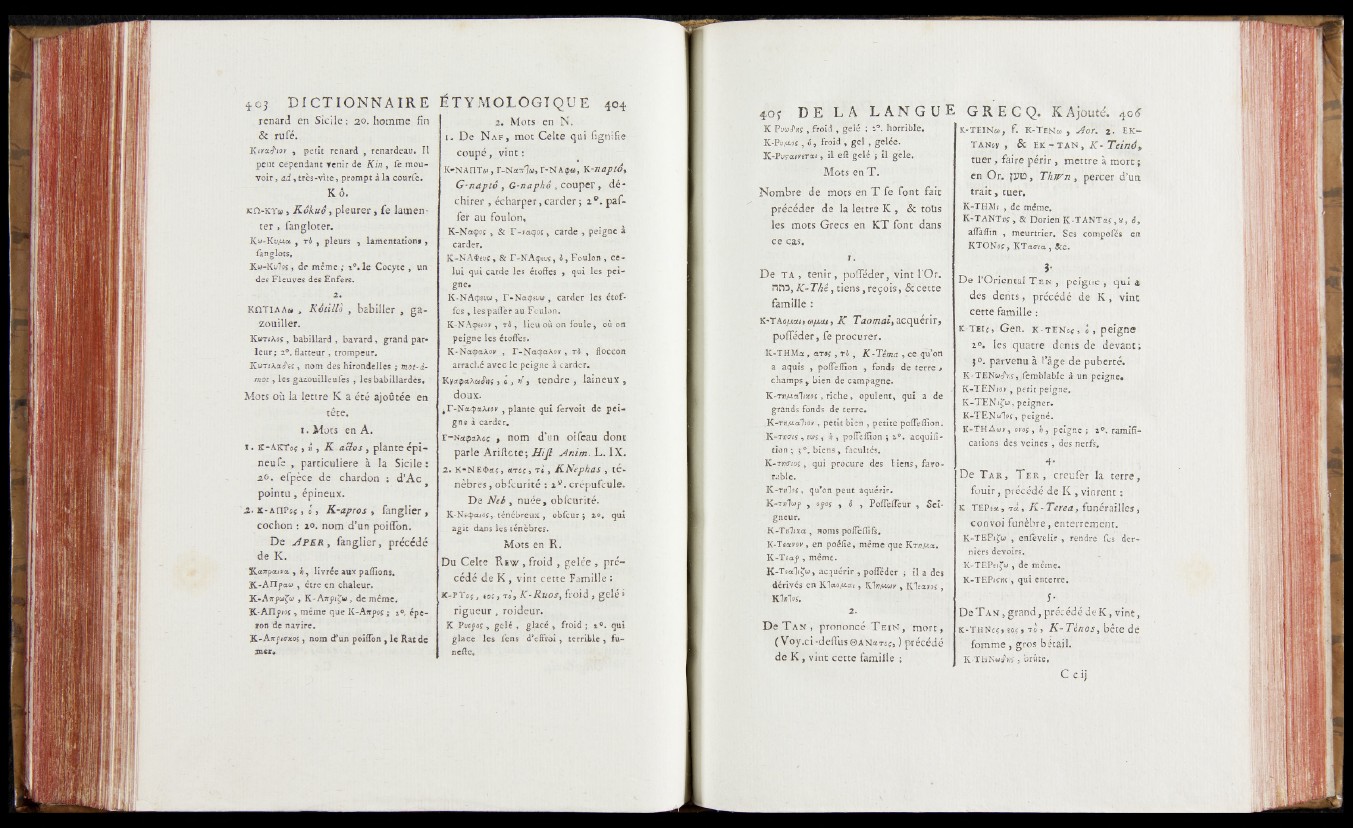 403 DICTIONNAIRE ÉTYMOLOGIQUE 404
renard en Sicile: 2o. homme fin
& rusé.
Κιναδιον , petit renard , renardeau. Il
peut cependant venir de Kin, se mou-
voir, ad, très-vîte, prompt à la course.
K ô.
ΚΩ-ΚΥω, Kôkuô, pleurer, se lamen-
ter , sangloter.
Κω-Κυμα , τὸ , pleurs , lamentations ,
sanglots.
Κω-Κυτος, de même ; 2°. le Cocyte , un
des Fleuves des Enfers.
2.
ΚΩΤΙΛΛω , Kôtillô , babiller , ga-
zouiller.
Κωτιλος, babillard , bavard, grand par-
leur; 2°. flatteur , trompeur.
Κωτιλαδες, nom des hirondelles ; mot-à-
mot, les gazouilleuses ; les babillardes.
Mots où la lettre K a été ajoûtée en
tête.
1. Mots en A.
1. Κ-ΑΚΤος, ἡ, K actos, plante épi-
neuse , particuliere à la Sicile :
2o. espèce de chardon ; d'Ac ,
pointu , épineux.
2. Κ-ΑΠΡος, ὁ, K-apros , sanglier ,
cochon : 2o. nom d'un poisson.
De APER, sanglier, précédé
de K.
Καπραινα , ἡ, livrée aux passions.
Κ-ΑΠραω , être en chaleur.
Κ-Απρωζω , Κ-Απριζω , de même.
Κ-ΑΠριος , même que Κ-Απρος ; 2°. épe-
ron de navire.
Κ-Απρισκος, nom d'un poisson , le Rat de
mer.
2. Mots en N.
1. De NAF, mot Celte qui signifie
coupé, vint :
Κ-ΝΑΠΤω, Γ-Ναπτω, Γ-ΝΑφω, K-naptô,
G-naptô , G-naphô , couper , dé-
chirer , écharper, carder ; 2°. pas-
ser au foulon.
Κ-Ναφος , & Γ-ναφος , carde , peigne à
carder.
Κ-ΝΑΦευς, & Γ-ΝΑφευς, ὁ, Foulon , ce-
lui qui carde les étoffes , qui les pei-
gne.
Κ-ΝΑφευω , Γ-Ναφευω , carder les étof-
fes , les passer au Foulon.
Κ-ΝΑφειον , τὸ, lieu où on foule, où on
peigne les étoffes.
Κ-Ναφαλον , Γ-Ναφαλον , τὸ , floccon
arraché avec le peigne à carder.
Κναφαλωδης, ὁ, ἡ, tendre , laineux ,
doux.
Γ-Ναφαλιον , plante qui servoit de pei-
gne à carder.
Γ-Ναφαλος , nom d'un oiseau dont
parle Aristote; Hist Anim. L. IX.
2. Κ-ΝΕΦας, ατος, τὸ, K Nephas , té-
nèbres, obscurité : 2°. crépuscule.
De Neb , nuée, obscurité.
Κ-Νεφαιος, ténébreux , obscur ; 2o. qui
agit dans les ténèbres.
Mots en R.
Du Celte REW, froid , gelée , pré-
cédé de K, vint cette Famille :
Κ-ΡΥος, εος, τὸ, K-Ruos, froid , gelé ;
rigueur , roideur.
Κ Ρυερος, gelé , glacé , froid ; 2°. qui
glace les sens d'effroi , terrible , fu-
neste.
405 DE LA LANGUE GRECQ. K Ajouté. 406
Κ Ρυωδης , froid , gelé ; 2°. horrible.
Κ-Ρυμος , ὁ, froid , gel , gelée.
Κ-Ρυσταινεται, il est gelé ; il gele.
Mots en T.
Nombre de mots en T se sont fait
précéder de la lettre K , & tous
les mots Grecs en KT sont dans
ce cas.
1.
De TA, tenir, posséder, vint l'Or.
תחת, K-Thé, tiens, reçois, & cette
famille :
Κ-ΤΑομαι, ωμαι, K Taomai, acquérir,
posséder, se procurer.
Κ-ΤΗΜα, ατος, τὸ, K-Téma , ce qu'on
a aquis , possession , fonds de terre ,
champs, bien de campagne.
Κ-τηματικος, riche, opulent, qui a de
grands fonds de terre.
Κ-τηματιον, petit bien , petite possession.
Κ-τησις, εως, ἡ, possession ; 2°. acquisi-
tion ; 3°. biens, facultés.
Κ-τησιος, qui procure des biens, favo-
rable.
Κ-τητος, qu'on peut aquérir.
Κ-τητωρ , ορος , ὁ , Possesseur , Sei-
gneur.
Κ-Τητικα , noms possessifs.
Κ-Τεανον , en poésie, même que Κτημα.
Κ-Τεαρ , même.
Κ-Τεατιζω, acquérir, posséder ; il a des
dérivés en Κταομαι, Κτημων , Κτεανος ,
Κτητος.
2.
De TAN, prononcé TEIN, mort,
( Voy. ci-dessus ΘΑΝατος, ) précédé
de K, vint cette famille ;
Κ-ΤΕΙΝω, f. Κ-ΤΕΝω , Aor. 2. ΕΚ-
ΤΑΝον , & ΕΚ-ΤΑΝ, K-Teinô,
tuer , faire périr , mettre à mort ;
en Or. , Thwn, percer d'un
trait, tuer.
Κ-ΤΗΜι , de même.
Κ-ΤΑΝΤης, & Dorien Κ-ΤΑΝΤας, ȣ, ὁ,
assassin , meurtrier. Ses composés en
ΚΤΟΝος, ΚΤασια, &c.
3.
De l'Oriental TEN, peigne, qui a
des dents, précédé de K, vint
cette famille :
Κ-ΤΕΙς, Gen. Κ-ΤΕΝος, ὁ, peigne
2o. les quatre dents de devant;
3o. parvenu à l'âge de puberté.
Κ-ΤΕΝωδης, semblable à un peigne.
Κ-ΤΕΝιον , petit peigne.
Κ-ΤΕΝιζω, peigner.
Κ-ΤΕΝωτος, peigné.
Κ-ΤΗΔων, ονος, ἡ, peigne ; 2°. ramifi-
cations des veines , des nerfs.
4.
De TAR, TER, creuser la terre,
fouir, précédé de K, vinrent :
Κ ΤΕΡεα, τὰ, K-Terea, funérailles,
convoi funèbre, enterrement.
Κ-ΤΕΡιζω , ensévelir , rendre ses der-
niers devoirs.
Κ-ΤΕΡειζω , de même.
Κ-ΤΕΡιστης , qui enterre.
5.
De TAN, grand, précédé de K, vint,
Κ-ΤΗΝος, εος, τὸ, K-Ténos, bête de
somme , gros bétail.
Κ-ΤΗΝωδης , brute.
C c ij